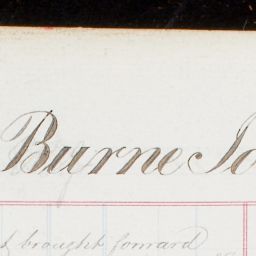 Burne Jo
brought forward